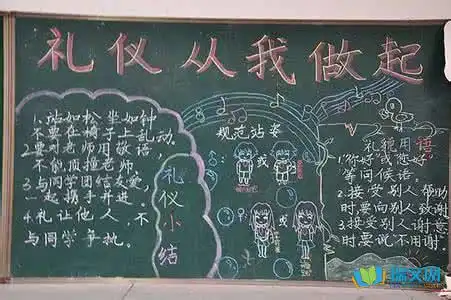 礼仪从我做起
1、站如松坐如钟
不要在椅子上乱动.
2、要对老师用敬语,
不能顶撞老师.
3、与同学团结友爱,
一起携手并进.
4、礼让他人,不
与同学争执。
礼仪小结
规范站姿
或
或
礼貌用语
1、"你好"或"您好"
等问候语,
2、接受别人帮助
时,要向别人致谢
3、接受别人谢意
时,要说"不用谢".